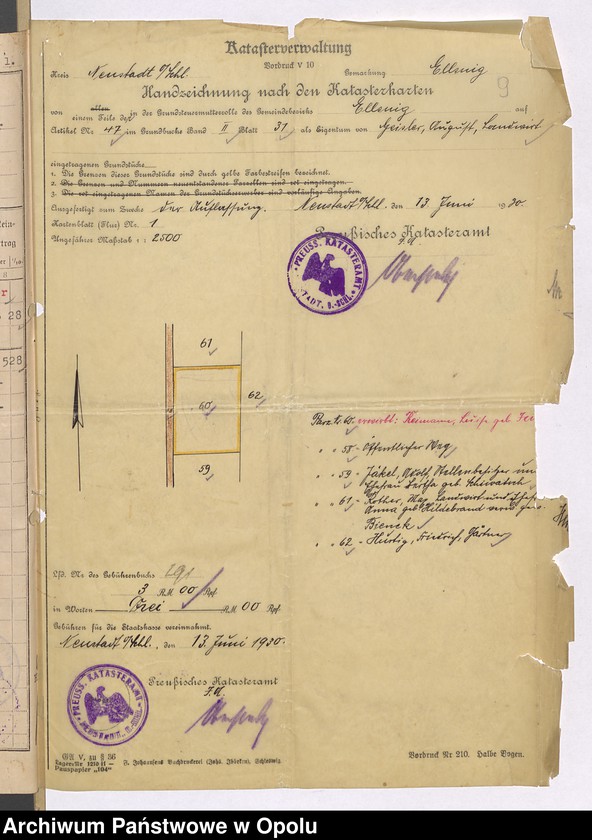 Katasterverwaltung
Vordruck V 10
Kreis Neustadt O/Schl. Gemarkung Ellnig
9
Handzeichnung nach den Katasterkarten
von allen in der Grundsteuermutterrolle des Gemeindebezirks Ellnig auf
einem Teile des
Artikel Nr 47 im Grundbuche Band II Blatt 31 als Eigentum von Geisler, August, Landwirt
eingetragenen Grundstücke
1. Die Grenzen dieses Grundstücks sind durch gelbe Farbestreifen bezeichnet.
2. Die Grenzen und Nummern neuentstandener Parzellen sind rot eingetragen.
3. Die rot eingetragenen Namen der Grundstückserwerber sind vorläufige Angaben.
Ausgefertigt zum Zwecke der Auflassung. Neustadt O/Schl. den 13. Juni 1930.
Kartenblatt (Flur) Nr. 1
Ungefährer Maßstab 1: 2500
Preußisches Katasteramt
PREUSS. KATASTERAMT
61
60
62
59
Parz. Nr. 60 erwirbt:
" " 58 - Öffentlicher Weg
" " 59 - Jäkel, Stellenbesitzer un
Ehefrau geb.
" " 61 - Kother, Landwirt und Ehef
Anna geb. Hildebrand verw. gew.
Bieneck
" " 62 - Hurtig, Friedrich, Gärtner
Lfd. Nr des Gebührenbuchs
3 RM 00 Rpf
in Worten Drei RM 00 Rpf.
Gebühren für die Staatskasse vereinnahmt.
Neustadt O/Schl., den 13. Juni 1930.
Preußisches Katasteramt
PREUSS. KATASTERAMT
GA V, zu § 36
Lager-Nr 1210 II —
Pauspapier „104"
J. Johannsens Buchdruckerei (Johs. Ibbeken), Schleswig.
Vordruck Nr 210. Halbe Bogen.
28
528
Archiwum Państwowe w Opolu